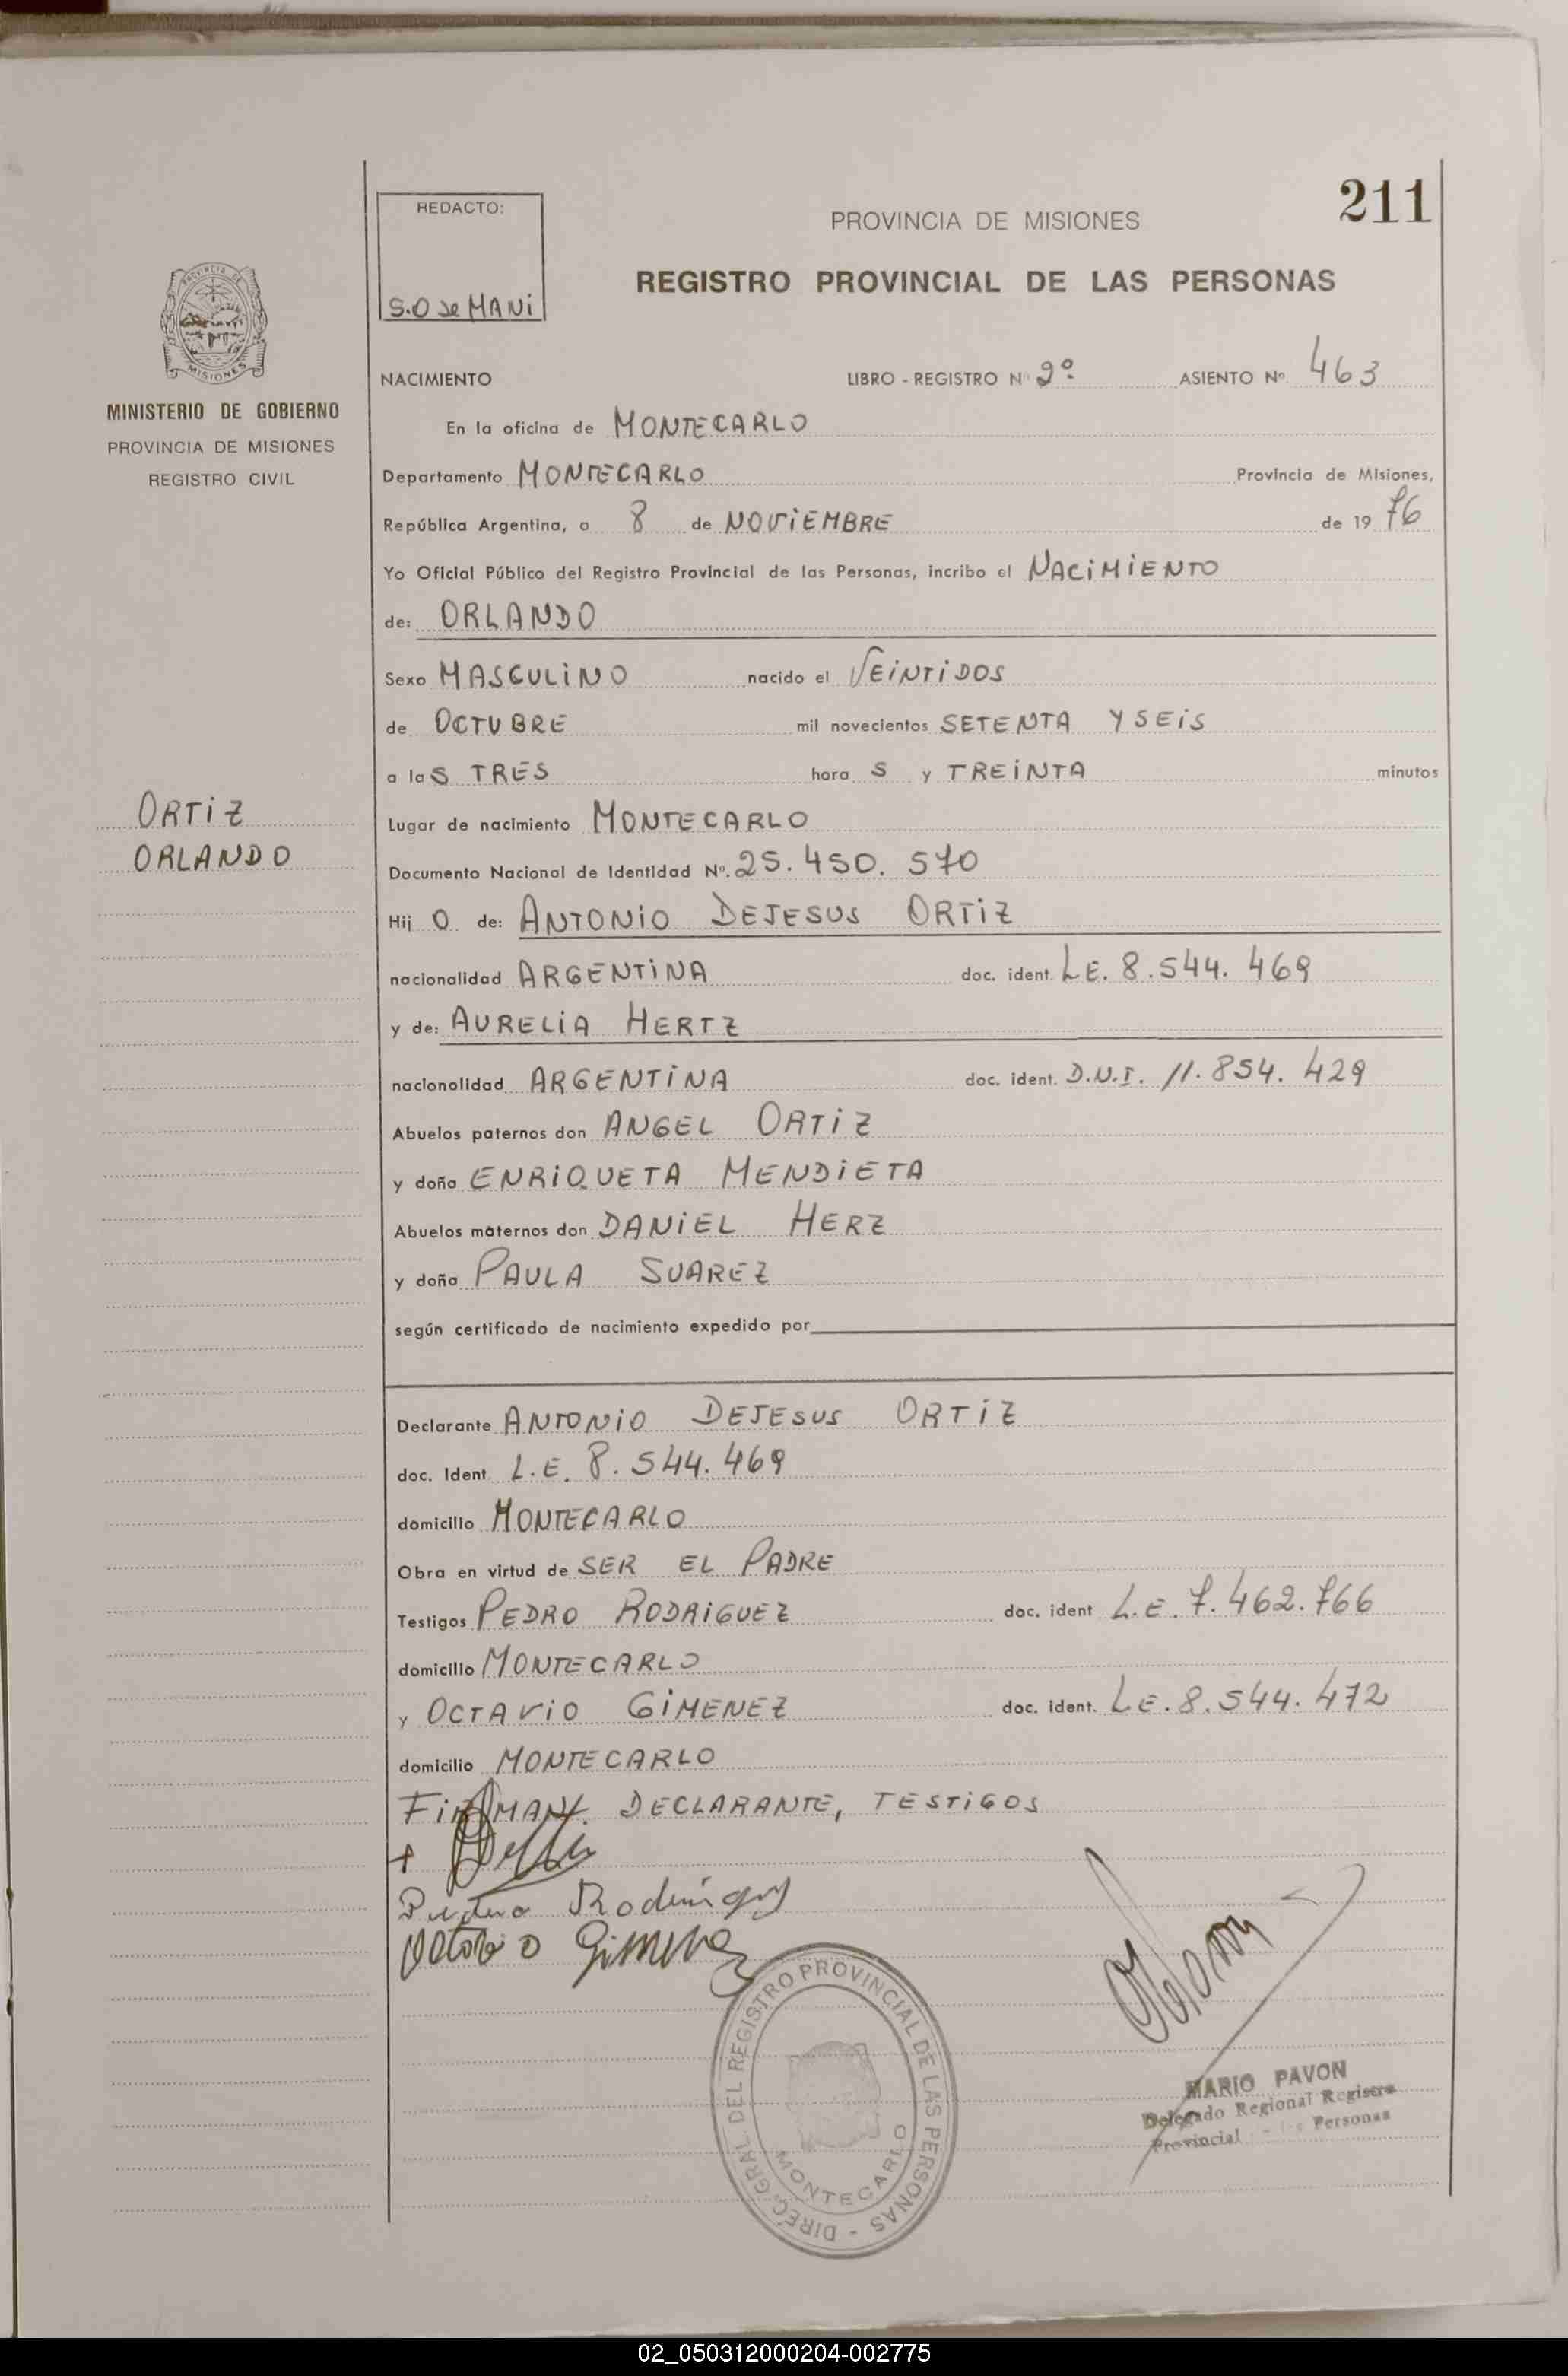 211
REDACTO:
S.O de MANi
PROVINCIA DE MISIONES
REGISTRO PROVINCIAL DE LAS PERSONAS
PROVINCIA DE
MISIONES
MINISTERIO DE GOBIERNO
PROVINCIA DE MISIONES
REGISTRO CIVIL
NACIMIENTO LIBRO - REGISTRO Nº 2º ASIENTO Nº 463
En la oficina de MONTECARLO
Departamento MONTECARLO Provincia de Misiones,
República Argentina, a 8 de NOViEMBRE de 19 76
Yo Oficial Público del Registro Provincial de las Personas, incribo el NACiMiENTO
de: ORLANDO
Sexo MASCULiNO nacido el VEiNTiDOS
de OCTUBRE mil novecientos SETENTA Y SEiS
a laS TRES hora S y TREiNTA minutos
ORTiZ
ORLANDO
Lugar de nacimiento MONTECARLO
Documento Nacional de Identidad Nº. 25.450.570
Hij O de: ANTONiO DEJESUS ORTiZ
nacionalidad ARGENTiNA doc. ident. LE. 8.544.469
y de: AURELiA HERTZ
nacionalidad ARGENTiNA doc. ident. D.N.I. 11.854.429
Abuelos paternos don ANGEL ORTiZ
y doña ENRiQUETA MENDiETA
Abuelos maternos don DANiEL HERZ
y doña PAULA SUAREZ
según certificado de nacimiento expedido por
Declarante ANTONiO DEJESUS ORTiZ
doc. Ident. L.E. 8.544.469
domicilio MONTECARLO
Obra en virtud de SER EL PADRE
Testigos PEDRO RODRiGUEZ doc. ident L.E. 7.462.766
domicilio MONTECARLO
y OCTAViO GiMENEZ doc. ident. LE. 8.544.472
domicilio MONTECARLO
FiRMAN. DECLARANTE, TESTiGOS
Pedro Rodriguez
Octavio Gimenez
DIREC. GRAL. DEL REGISTRO PROVINCIAL DE LAS PERSONAS -
MONTECARLO
MARIO PAVON
Delegado Regional Registro
Provincial Personas
02_050312000204-002775